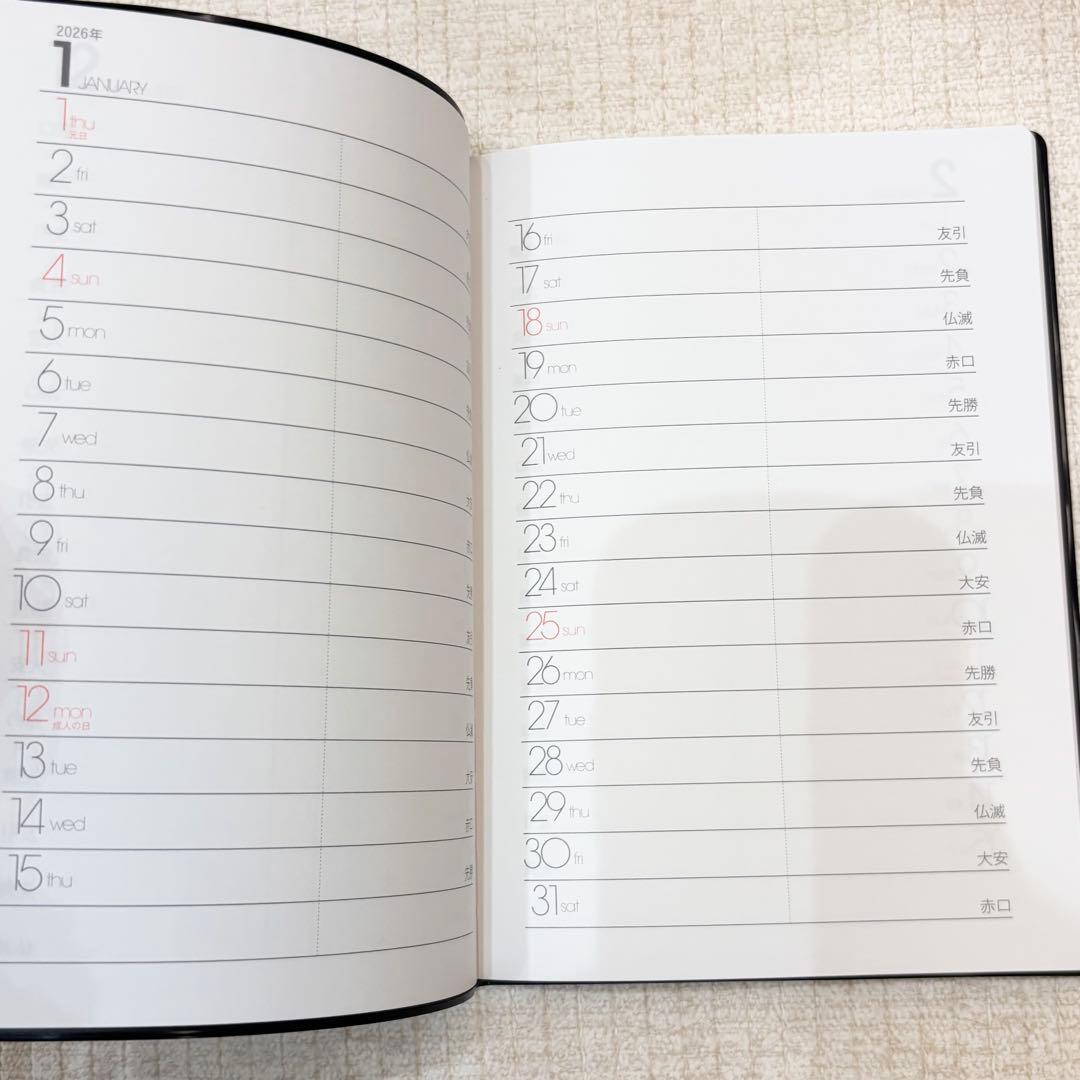 2026年
1 JANUARY
1 thu
元日
2 fri
3 sat
4 sun
5 mon
6 tue
7 wed
8 thu
9 fri
10 sat
11 sun
12 mon
成人の日
13 tue
14 wed
15 thu
16 fri 友引
17 sat 先負
18 sun 仏滅
19 mon 赤口
20 tue 先勝
21 wed 友引
22 thu 先負
23 fri 仏滅
24 sat 大安
25 sun 赤口
26 mon 先勝
27 tue 友引
28 wed 先負
29 thu 仏滅
30 fri 大安
31 sat 赤口